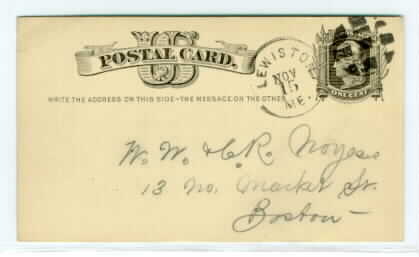 US
POSTAL CARD.
WRITE THE ADDRESS ON THIS SIDE-THE MESSAGE ON THE OTHER
LEWISTON
NOV
15
ME.
ONE CENT
W. W. & C. R. Noyes
13 No. Market St.
Boston-